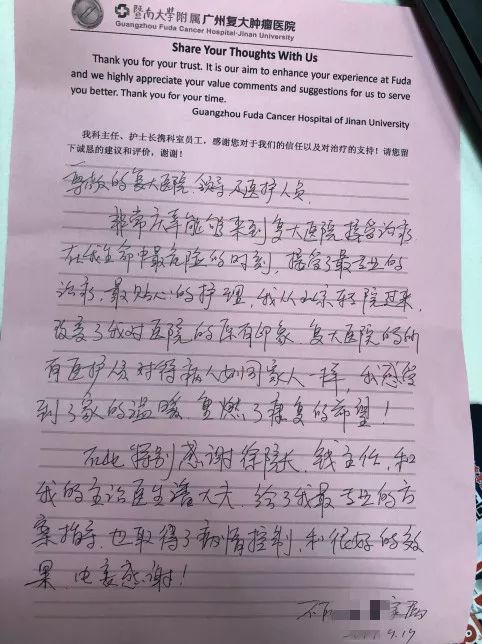 暨南大學附属 广州复大肿瘤医院
Guangzhou Fuda Cancer Hospital·Jinan University
Share Your Thoughts With Us
Thank you for your trust. It is our aim to enhance your experience at Fuda
and we highly appreciate your value comments and suggestions for us to serve
you better. Thank you for your time.
Guangzhou Fuda Cancer Hospital of Jinan University
我科主任、护士长携科室员工，感谢您对于我们的信任以及对治疗的支持！请您留
下诚恳的建议和评价，谢谢！
尊敬的复大医院领导及医护人员
非常庆幸能够来到复大医院接受治疗
在我生命中最危险的时刻，接受了最专业的
治疗，最贴心的护理，我从北京转院过来，
改变了我对医院的原有印象，复大医院的所
有医护人员对待病人如同家人一样，我感受
到了家的温暖，重燃了康复的希望！
在此特别感谢徐院长，钱主任，和
我的主治医生潘大夫，给了我最专业的方
案指导，也取得了病情控制，和很好的效
果，由衷感谢！
家属
9.19